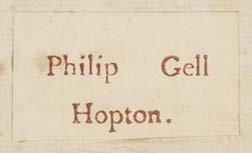 Philip Gell
Hopton.